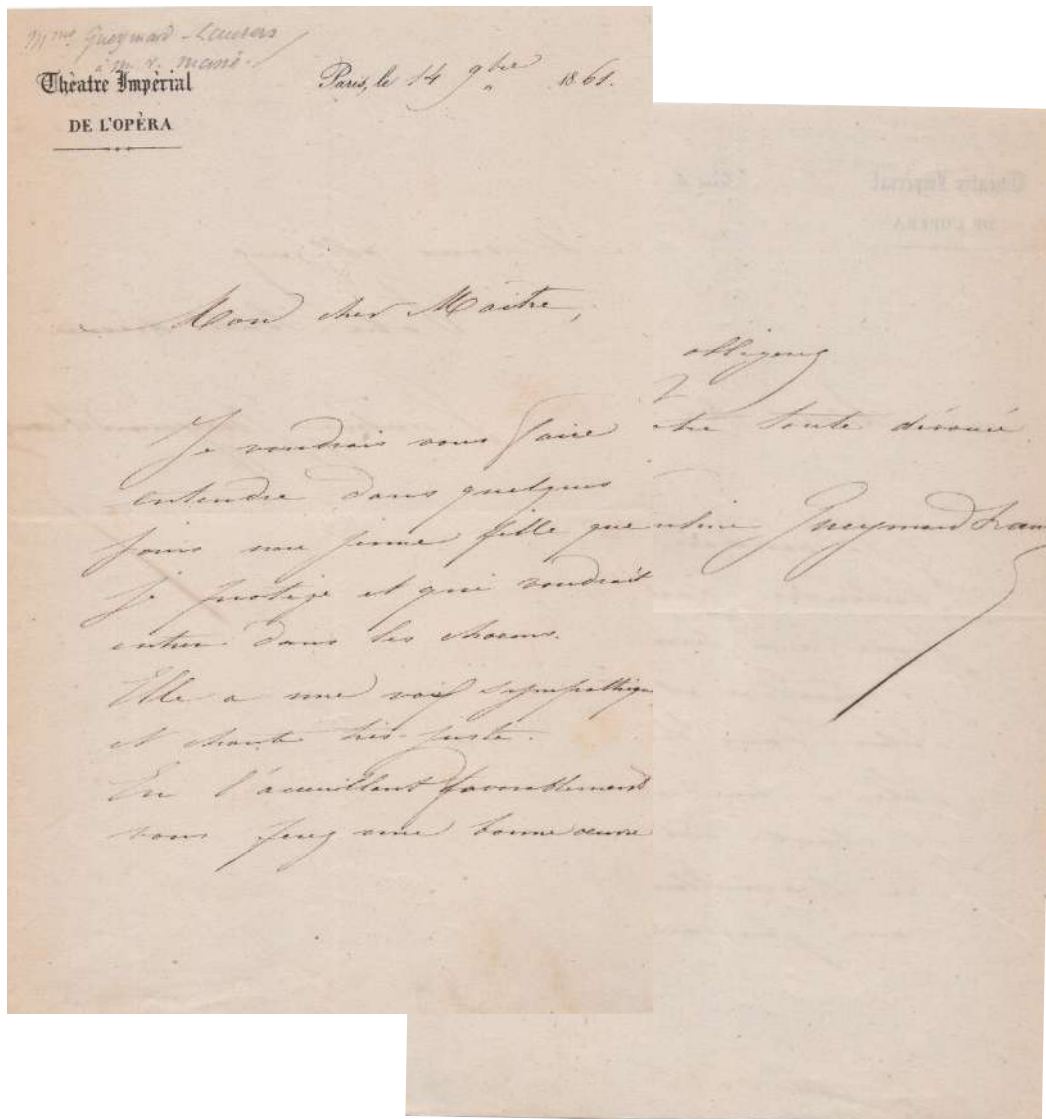 Mme Gueymard-Lauters
à m. v. massé.
Théatre Impérial
DE L'OPÉRA
Paris, le 14 9bre 1861.
Mon cher Maitre,
Je voudrais vous faire
entendre dans quelques
jours une jeune fille que
je protége et qui voudrait
entrer dans les choeurs.
Elle a une voix sympathique
et chante très juste.
En l'accueillant favorablement
vous ferez une bonne œuvre
obligerez
toute dévouée
Gueymard